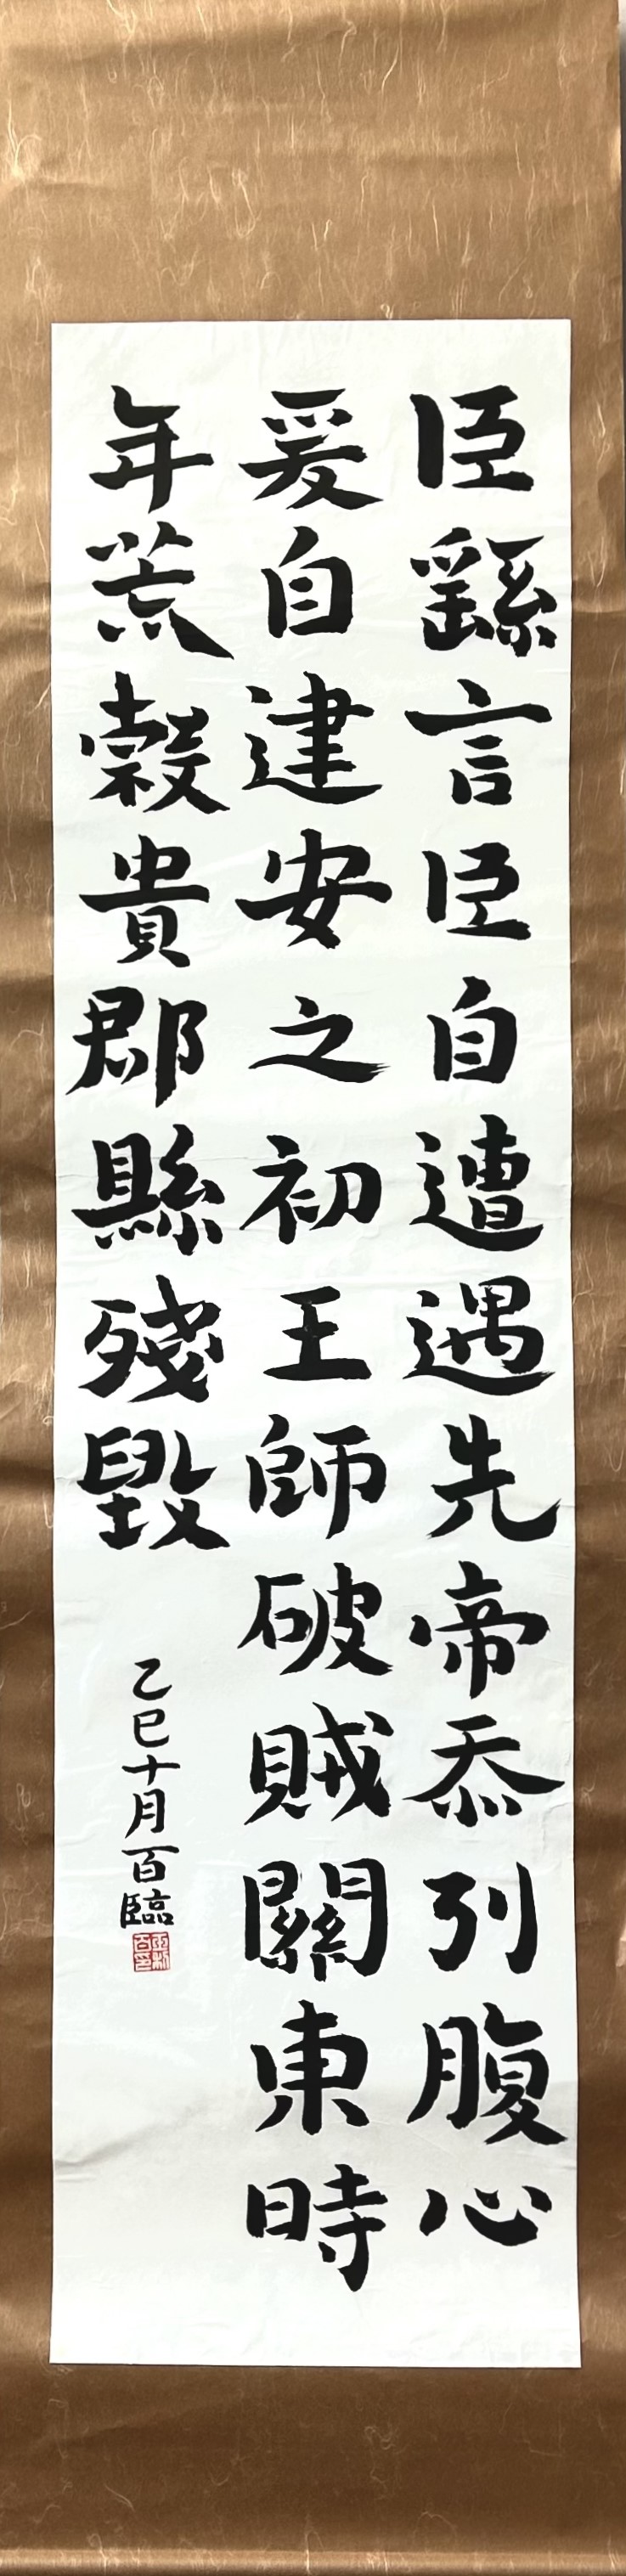 臣繇言臣自遭遇先帝忝列腹心
爰自建安之初王師破賊關東時
年荒穀貴郡縣殘毀
乙巳十月百臨